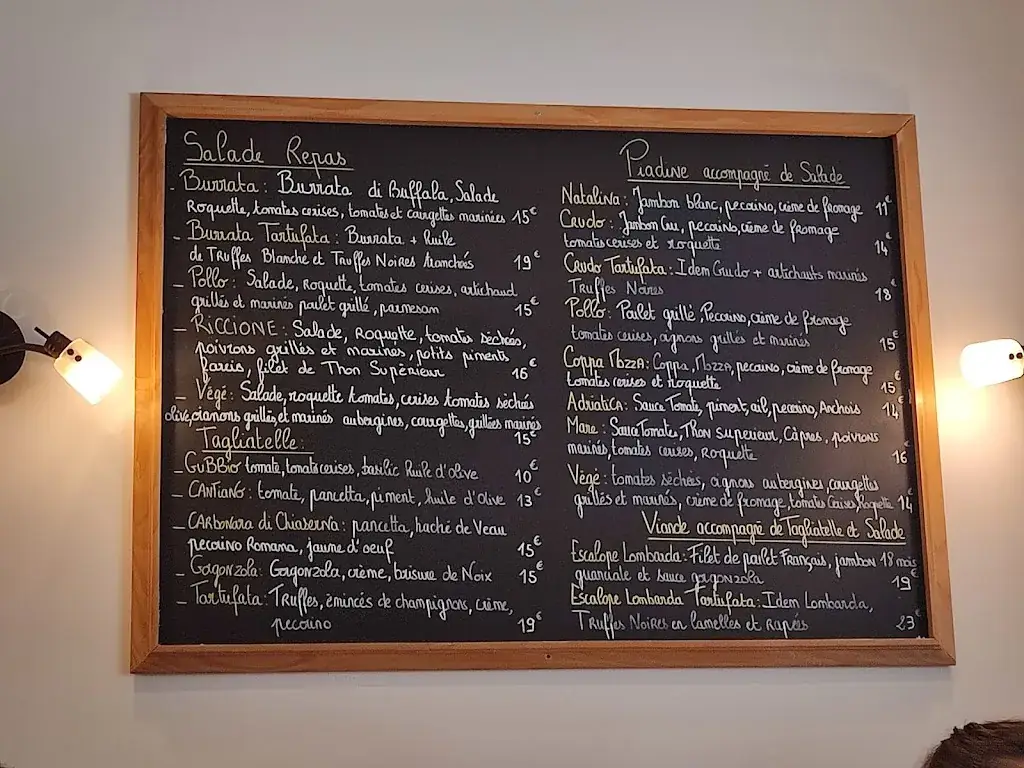 Salade Repas
- Burrata : Burrata di Buffala, Salade
Roquette, tomates cerises, tomates et courgettes marinées 15€
- Burrata Tartufata : Burrata + huile
de Truffes Blanche et Truffes Noires tranchés 19€
- Pollo : Salade, roquette, tomates cerises, artichaud
grillés et marinés poulet grillé, parmesan 15€
- RICCIONE : Salade, Roquette, tomates séchées,
poivrons grillés et marines, petits piments
farcis, filet de Thon Supérieur 16€
- Végé : Salade, roquette tomates, cerises tomates séchées
olive, oignons grillés, et marinés aubergines, courgettes, grillées marinés
15€
Tagliatelle :
- GUBBIO tomate, tomates cerises, basilic huile d'olive 10€
- CANTIANO : tomate, pancetta, piment, huile d'olive 13€
- CARbonara di Chiaserna : pancetta, haché de Veau
pecorino Romana, jaune d'oeuf 15€
- Gorgonzola : Gorgonzola, crème, brisure de Noix 15€
- Tartufata : Truffes, émincés de champignons, crème,
pecorino 19€
Piadine accompagné de Salade
Natalina : Jambon blanc, pecorino, crème de fromage 11€
Crudo : Jambon Cru, pecorino, crème de fromage
tomates cerises et roquette 14€
Crudo Tartufata : Idem Crudo + artichauts marinés
Truffes Noires 18€
Pollo : Poulet grillé, Pecorino, crème de fromage
tomates cerises, oignons grillés et marinés 15€
Coppa Mozza : Coppa, Mozza, pecorino, crème de fromage
tomates cerises et roquette 15€
Adriatica : Sauce Tomate, piment, ail, pecorino, Anchois 14€
Mare : Sauce Tomate, Thon superieur, Câpres, poivrons
marinés, tomates cerises, Roquette 16€
Végé : tomates séchées, oignons aubergines, courgettes
grillés et marinés, crème de fromage, tomates Cerises, Roquette 14€
Viande accompagné de Tagliatelle et Salade
Escalope Lombarda : Filet de poulet Français, jambon 18 mois
guanciale et sauce gorgonzola 19€
Escalope Lombarda Tartufata : Idem Lombarda,
Truffes Noires en lamelles et rapées 23€